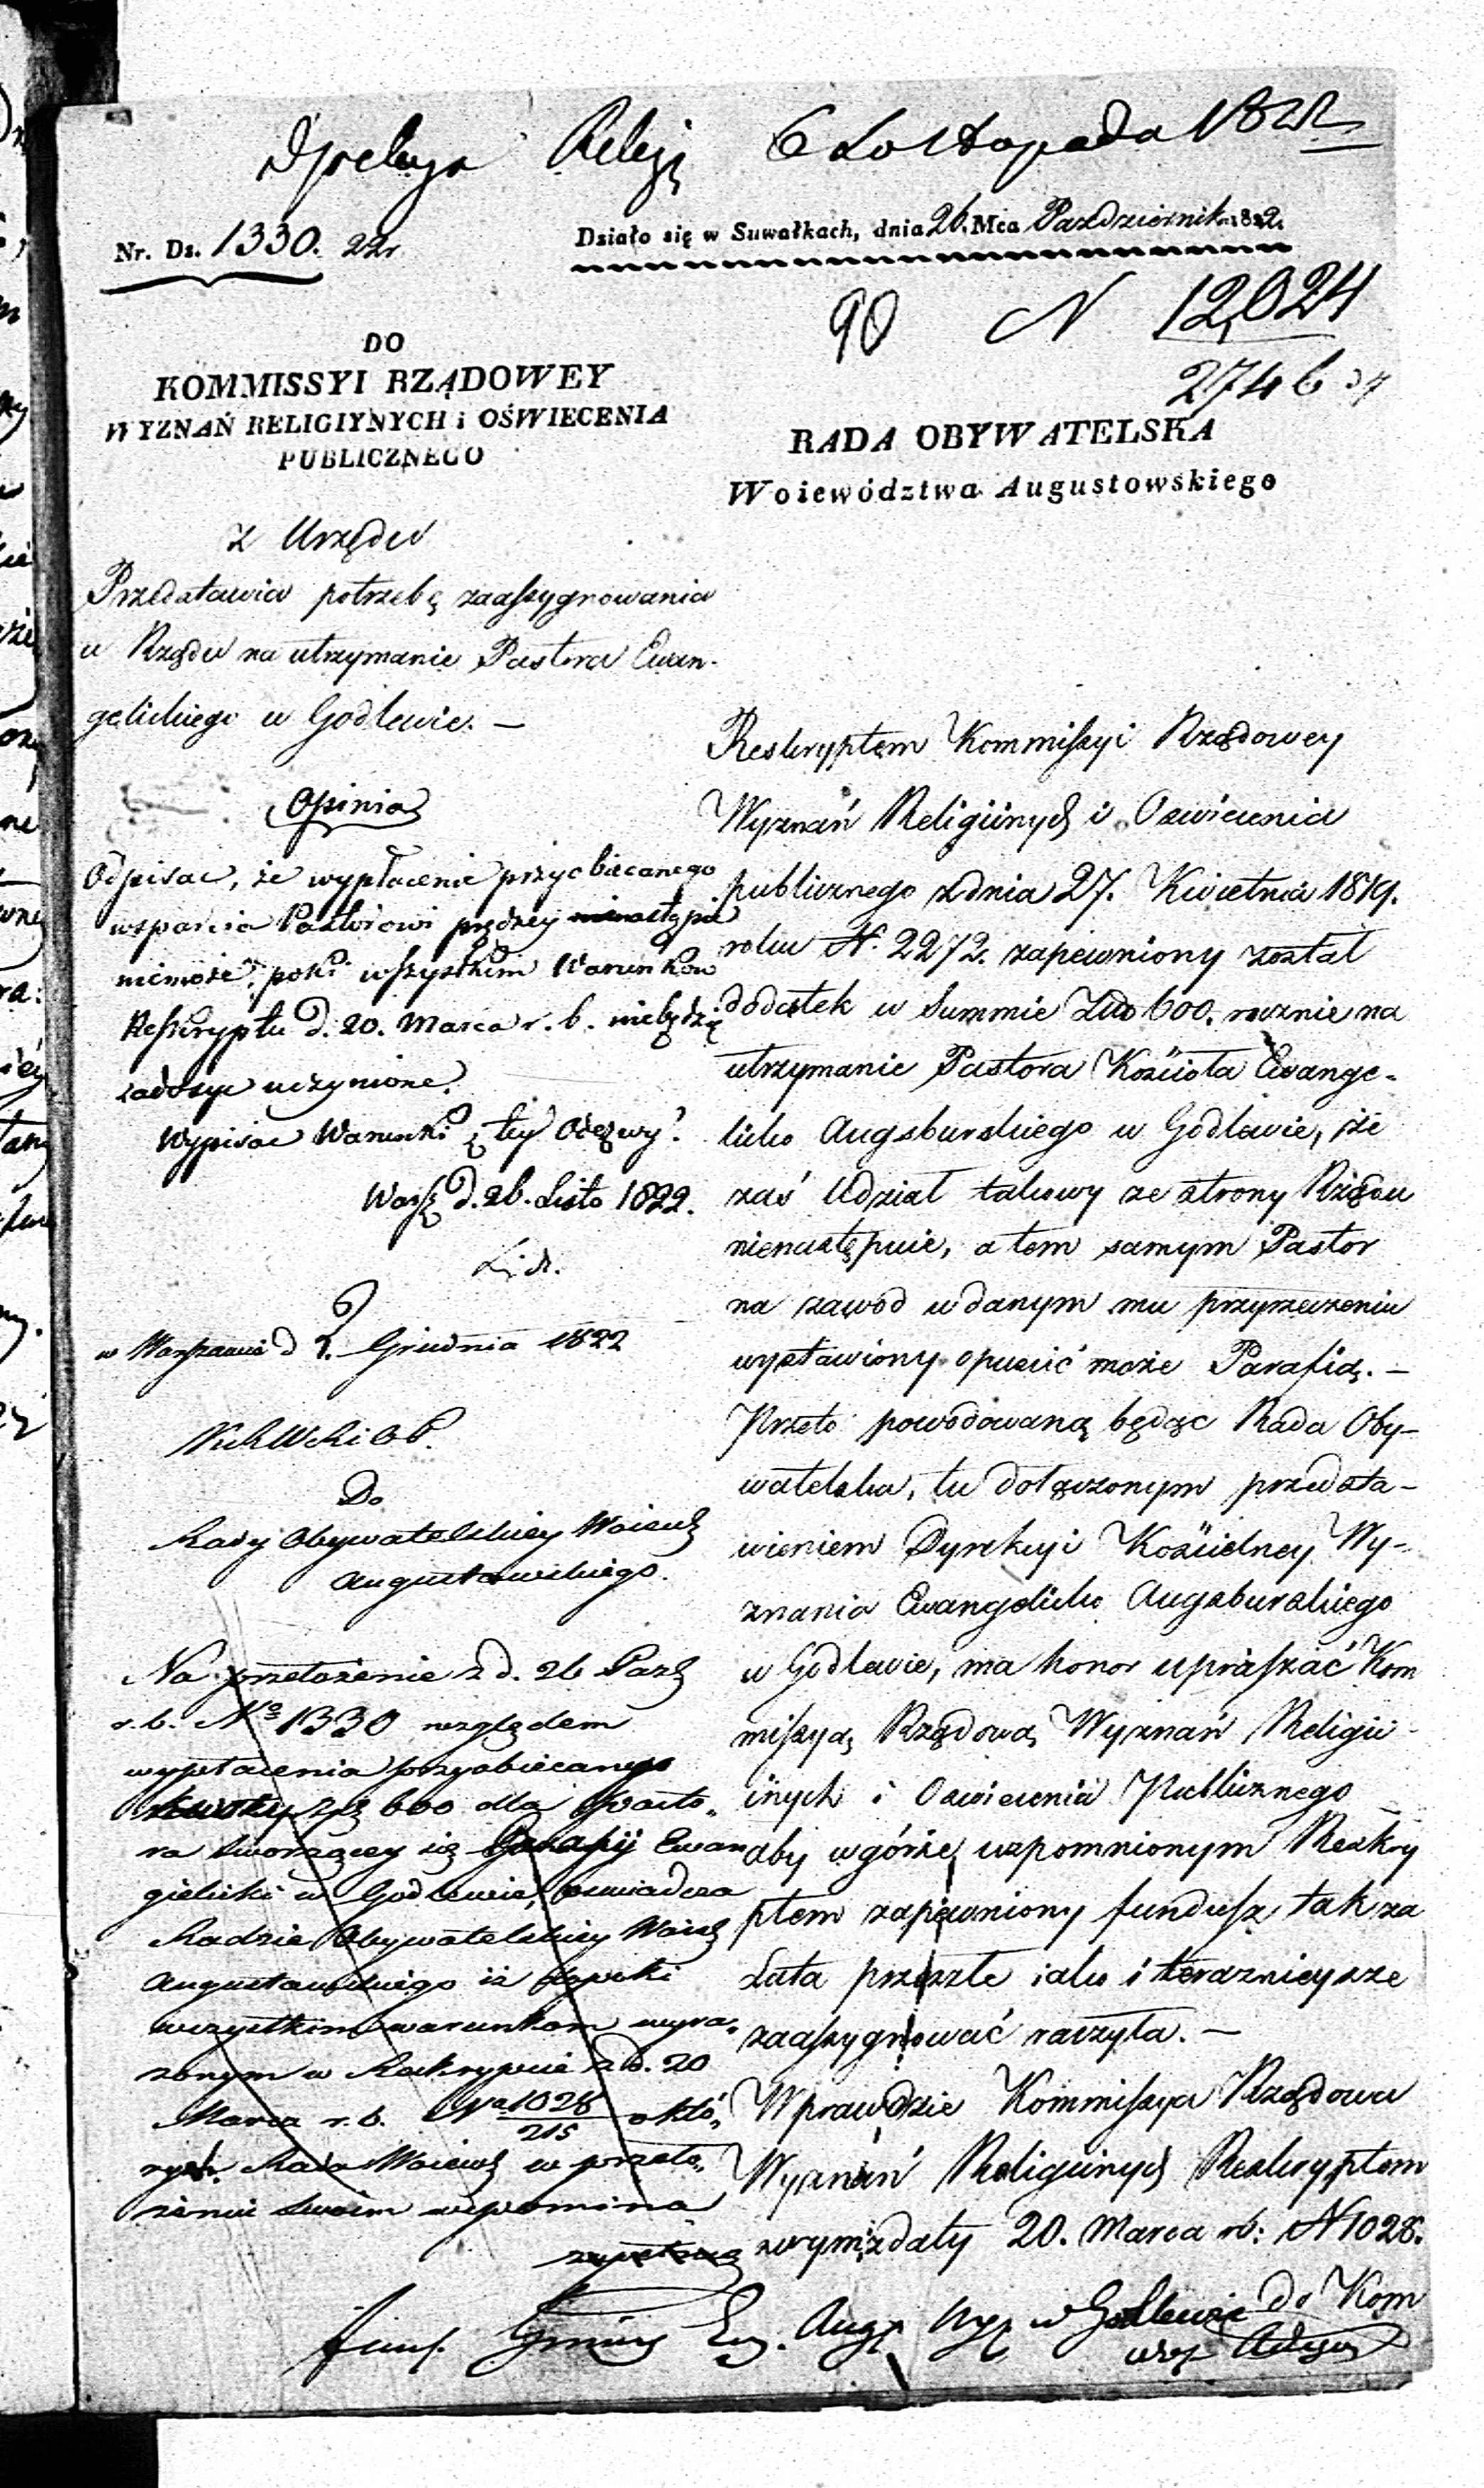 Religij 6 Listopada 1822
Nr. Dz. 1330. 22r
Działo się w Suwałkach, dnia 26. Mca Październik 1822.
90 N 12,024
2746
DO
KOMMISSYI RZĄDOWEY
WYZNAŃ RELIGIYNYCH i OŚWIECENIA
PUBLICZNEGO
RADA OBYWATELSKA
Woiewództwa Augustowskiego
z Urzędu
Przedstawia potrzebę zaassygnowania
u Rządu na utrzymanie Pastora Ewan-
gelickiego w Godlewie. —
Opinia
Odpisac, że wypłacenie przyobiecanego
wsparcia Pastorowi prędzey nastąpić
niemoże, poki wszystkim Warunkom
Reskryptu d. 20. Marca r. b. niebędzie
zadosyc uczynione.
Wypisac Warunki z tey Odezwy.
Warsz d. 26. Listo 1822.
w Warszawie d 3. Grudnia 1822
Do
Rady Obywatelskiey Woiewdz
Augustowskiego.
Na przełożenie z d. 26 Paźdz
r. b. No 1330 względem
wypłacenia przyobiecanego
złp 600 dla Pasto-
ra tworzącey się Parafij Ewan
gielicki w Godlewie, oswiadcza
Radzie Obywatelskiey Woiewdz
Augustowskiego iż dopoki
wszystkim warunkom wyra-
żonym w Reskrypcie z d. 20
Marca r. b. No 1028/215 o któ-
rych Rada Woiewdz w przeło-
żeniu swoim wspomina
Reskryptem Kommissyi Rządowey
Wyznań Religiinych i Oswiecenia
publicznego z dnia 27. Kwietnia 1819.
roku N. 2272. zapewniony został
dodatek w Summie Złp 600. rocznie na
utrzymanie Pastora Kościoła Ewange-
licko Augsburskiego w Godlewie, że
zaś Udział takowy ze strony Rządu
nienastępuie, a tem samym Pastor
na zawód w danym mu przyrzeczeniu
wystawiony opuścić może Parafią. —
Przeto powodowaną będąc Rada Oby-
watelska, tu dołączonym przedsta-
wieniem Dyrekcyi Kościelney Wy-
znania Ewangelicko Augsburskiego
w Godlewie, ma honor upraszać Kom
missyą Rządową Wyznań Religii-
inych i Oswiecenia Publicznego
aby wgórze wzpomnionym Reskry
ptem zapewniony fundusz tak za
Lata przeszłe iako i teraznieysze
zaassygnować raczyła. —
Wprawdzie Kommissya Rządowa
Wyznań Religiinych Reskryptem
swym z daty 20. Marca rb: N 1028.
do Kom
Gminy Ew. Augs. w Godlewie